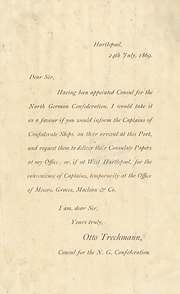 Hartlepool,
24th July, 1869.
Dear Sir,
Having been appointed Consul for the
North German Confederation, I would take it
as a favour if you would inform the Captains of
Confederate Ships, on their arrival at this Port,
and request them to deliver their Consular Papers
at my Office, or, if at West Hartlepool, for the
convenience of Captains, temporarily at the Office
of Messrs. Groves, Maclean & Co.
I am, dear Sir,
Yours truly,
Otto Trechmann,
Consul for the N. G. Confederation